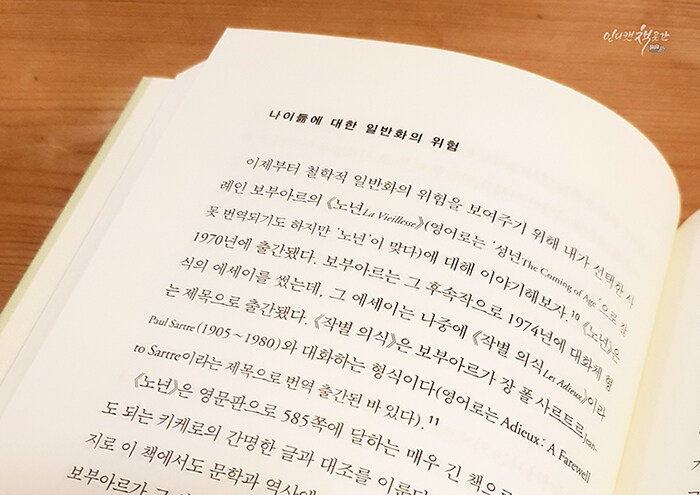 인디캣책곳간
나이듦에 대한 일반화의 위험
이제부터 철학적 일반화의 위험을 보여주기 위해 내가 선택한 사
례인 보부아르의 《노년La Vieillesse》(영어로는 '성년The Coming of Age'으로 잘
못 번역되기도 하지만 '노년'이 맞다)에 대해 이야기해보자.10 《노년》은
1970년에 출간됐다. 보부아르는 그 후속작으로 1974년에 대화체 형
식의 에세이를 썼는데, 그 에세이는 나중에 《작별 의식Les Adieux》이라
는 제목으로 출간됐다. 《작별 의식》은 보부아르가 장 폴 사르트르Jean-
Paul Sartre(1905~1980)와 대화하는 형식이다(영어로는 Adieux: A Farewell
to Sartre이라는 제목으로 번역 출간된 바 있다).11
《노년》은 영문판으로 585쪽에 달하는 매우 긴 책으로
도 되는 키케로의 간명한 글과 대조를 이룬다
지로 이 책에서도 문학과 역사에
보부아르가 그